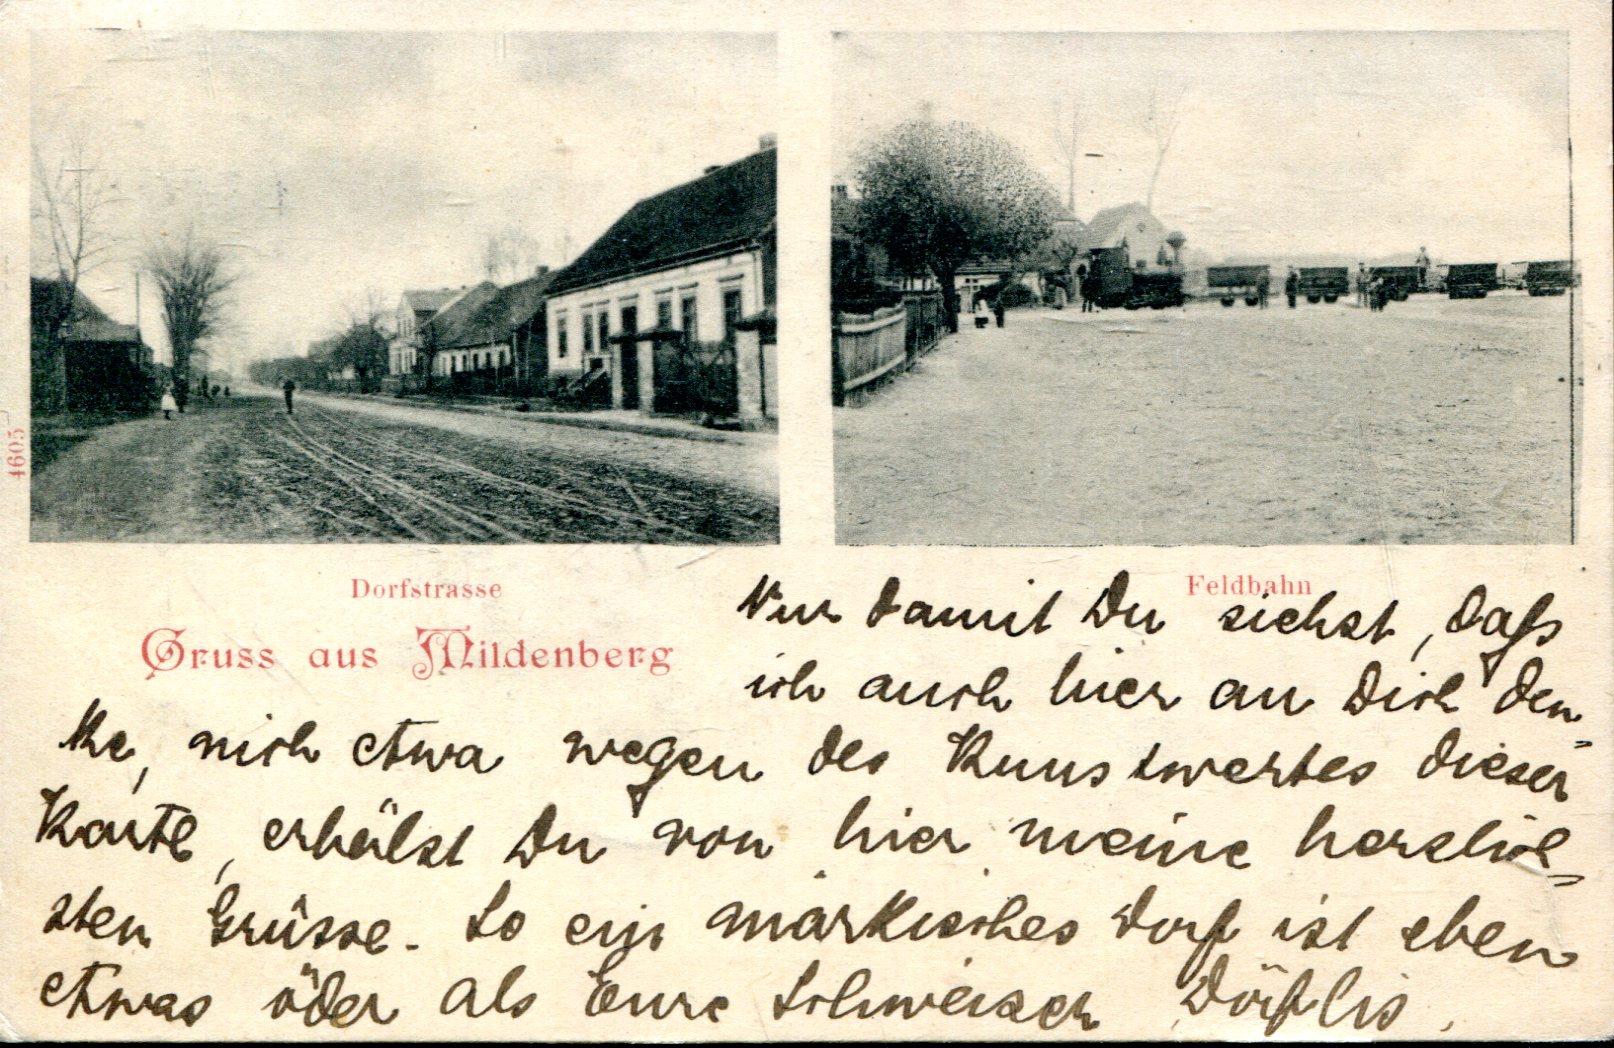 4605
Dorfstrasse
Feldbahn
Gruss aus Mildenberg
Nur damit Du siehst, daß
ich auch hier an Dich den-
ke, nich etwa wegen des Kunstwertes dieser
Karte, erhälst Du von hier meine herzlich-
sten Grüsse. So ein märkisches Dorf ist eben
etwas öder als Eure Schweizer Dörflis.